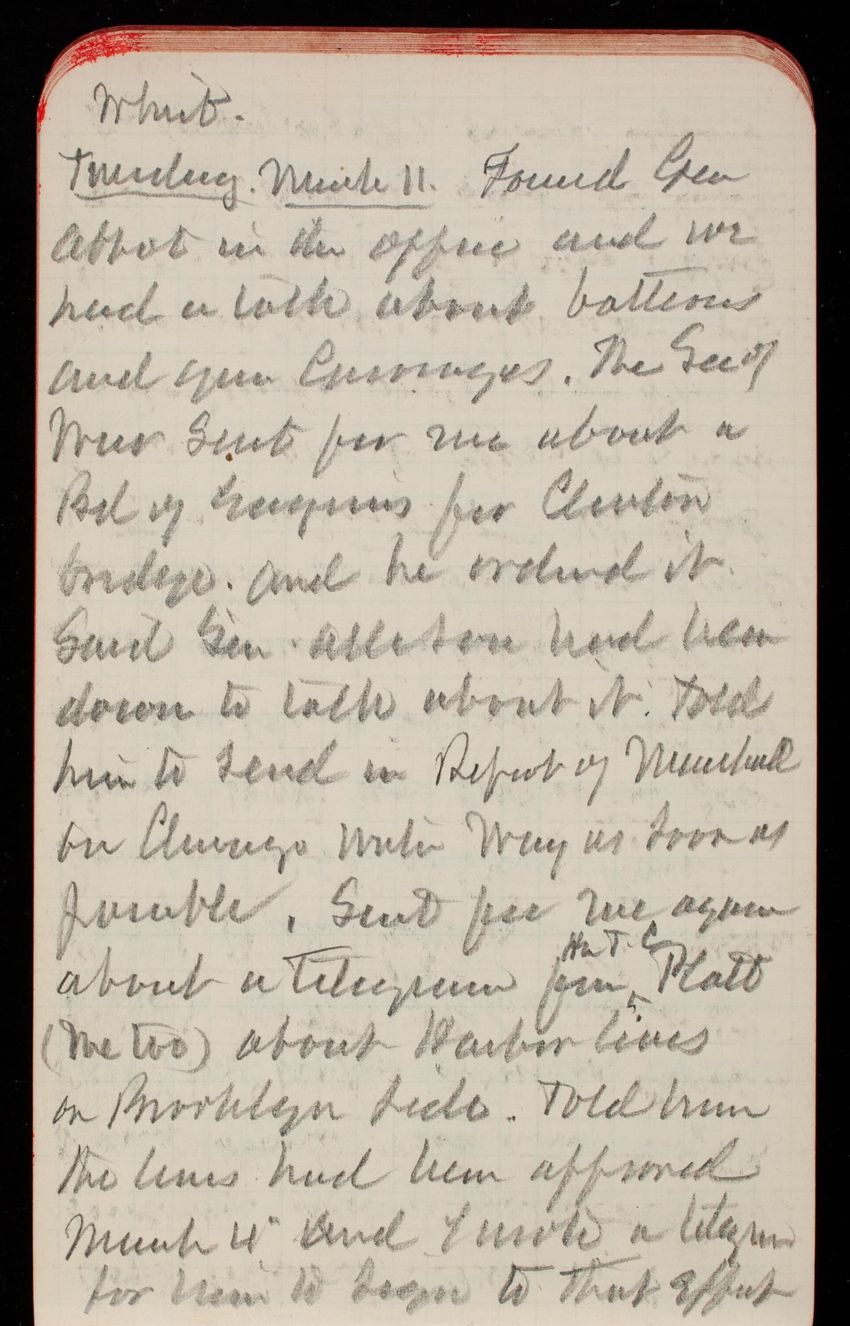 Whist.
Tuesday. March 11. Found Gen
Abbot in the office and we
had a talk about batteries
and gun carriages. The Sec of
War sent for me about a
Bd of Engineers for Clinton
bridge. and he ordered it.
Said Gen. had been
down to talk about it. Told
him to send in Report of Marshall
on Chicago Water Way as soon as
possible. Sent for me again
about a telegram from Hn T. C. Platt
(Me too) about Harbor lines
on Brooklyn side. Told him
the lines had been approved
March 4" and I wrote a telegram
for him to sign to that effect